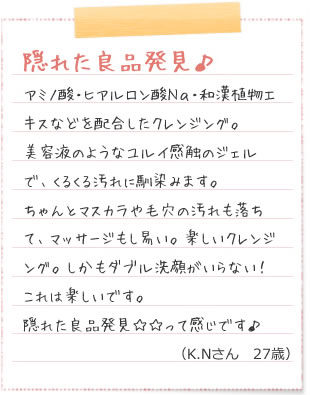 隠れた良品発見♪
アミノ酸・ヒアルロン酸Na・和漢植物エ
キスなどを配合したクレンジング。
美容液のようなユルイ感触のジェル
で、くるくる汚れに馴染みます。
ちゃんとマスカラや毛穴の汚れも落ち
て、マッサージもし易い。楽しいクレンジ
ング。しかもダブル洗顔がいらない！
これは楽しいです。
隠れた良品発見☆☆って感じです♪
（K.Nさん　27歳）